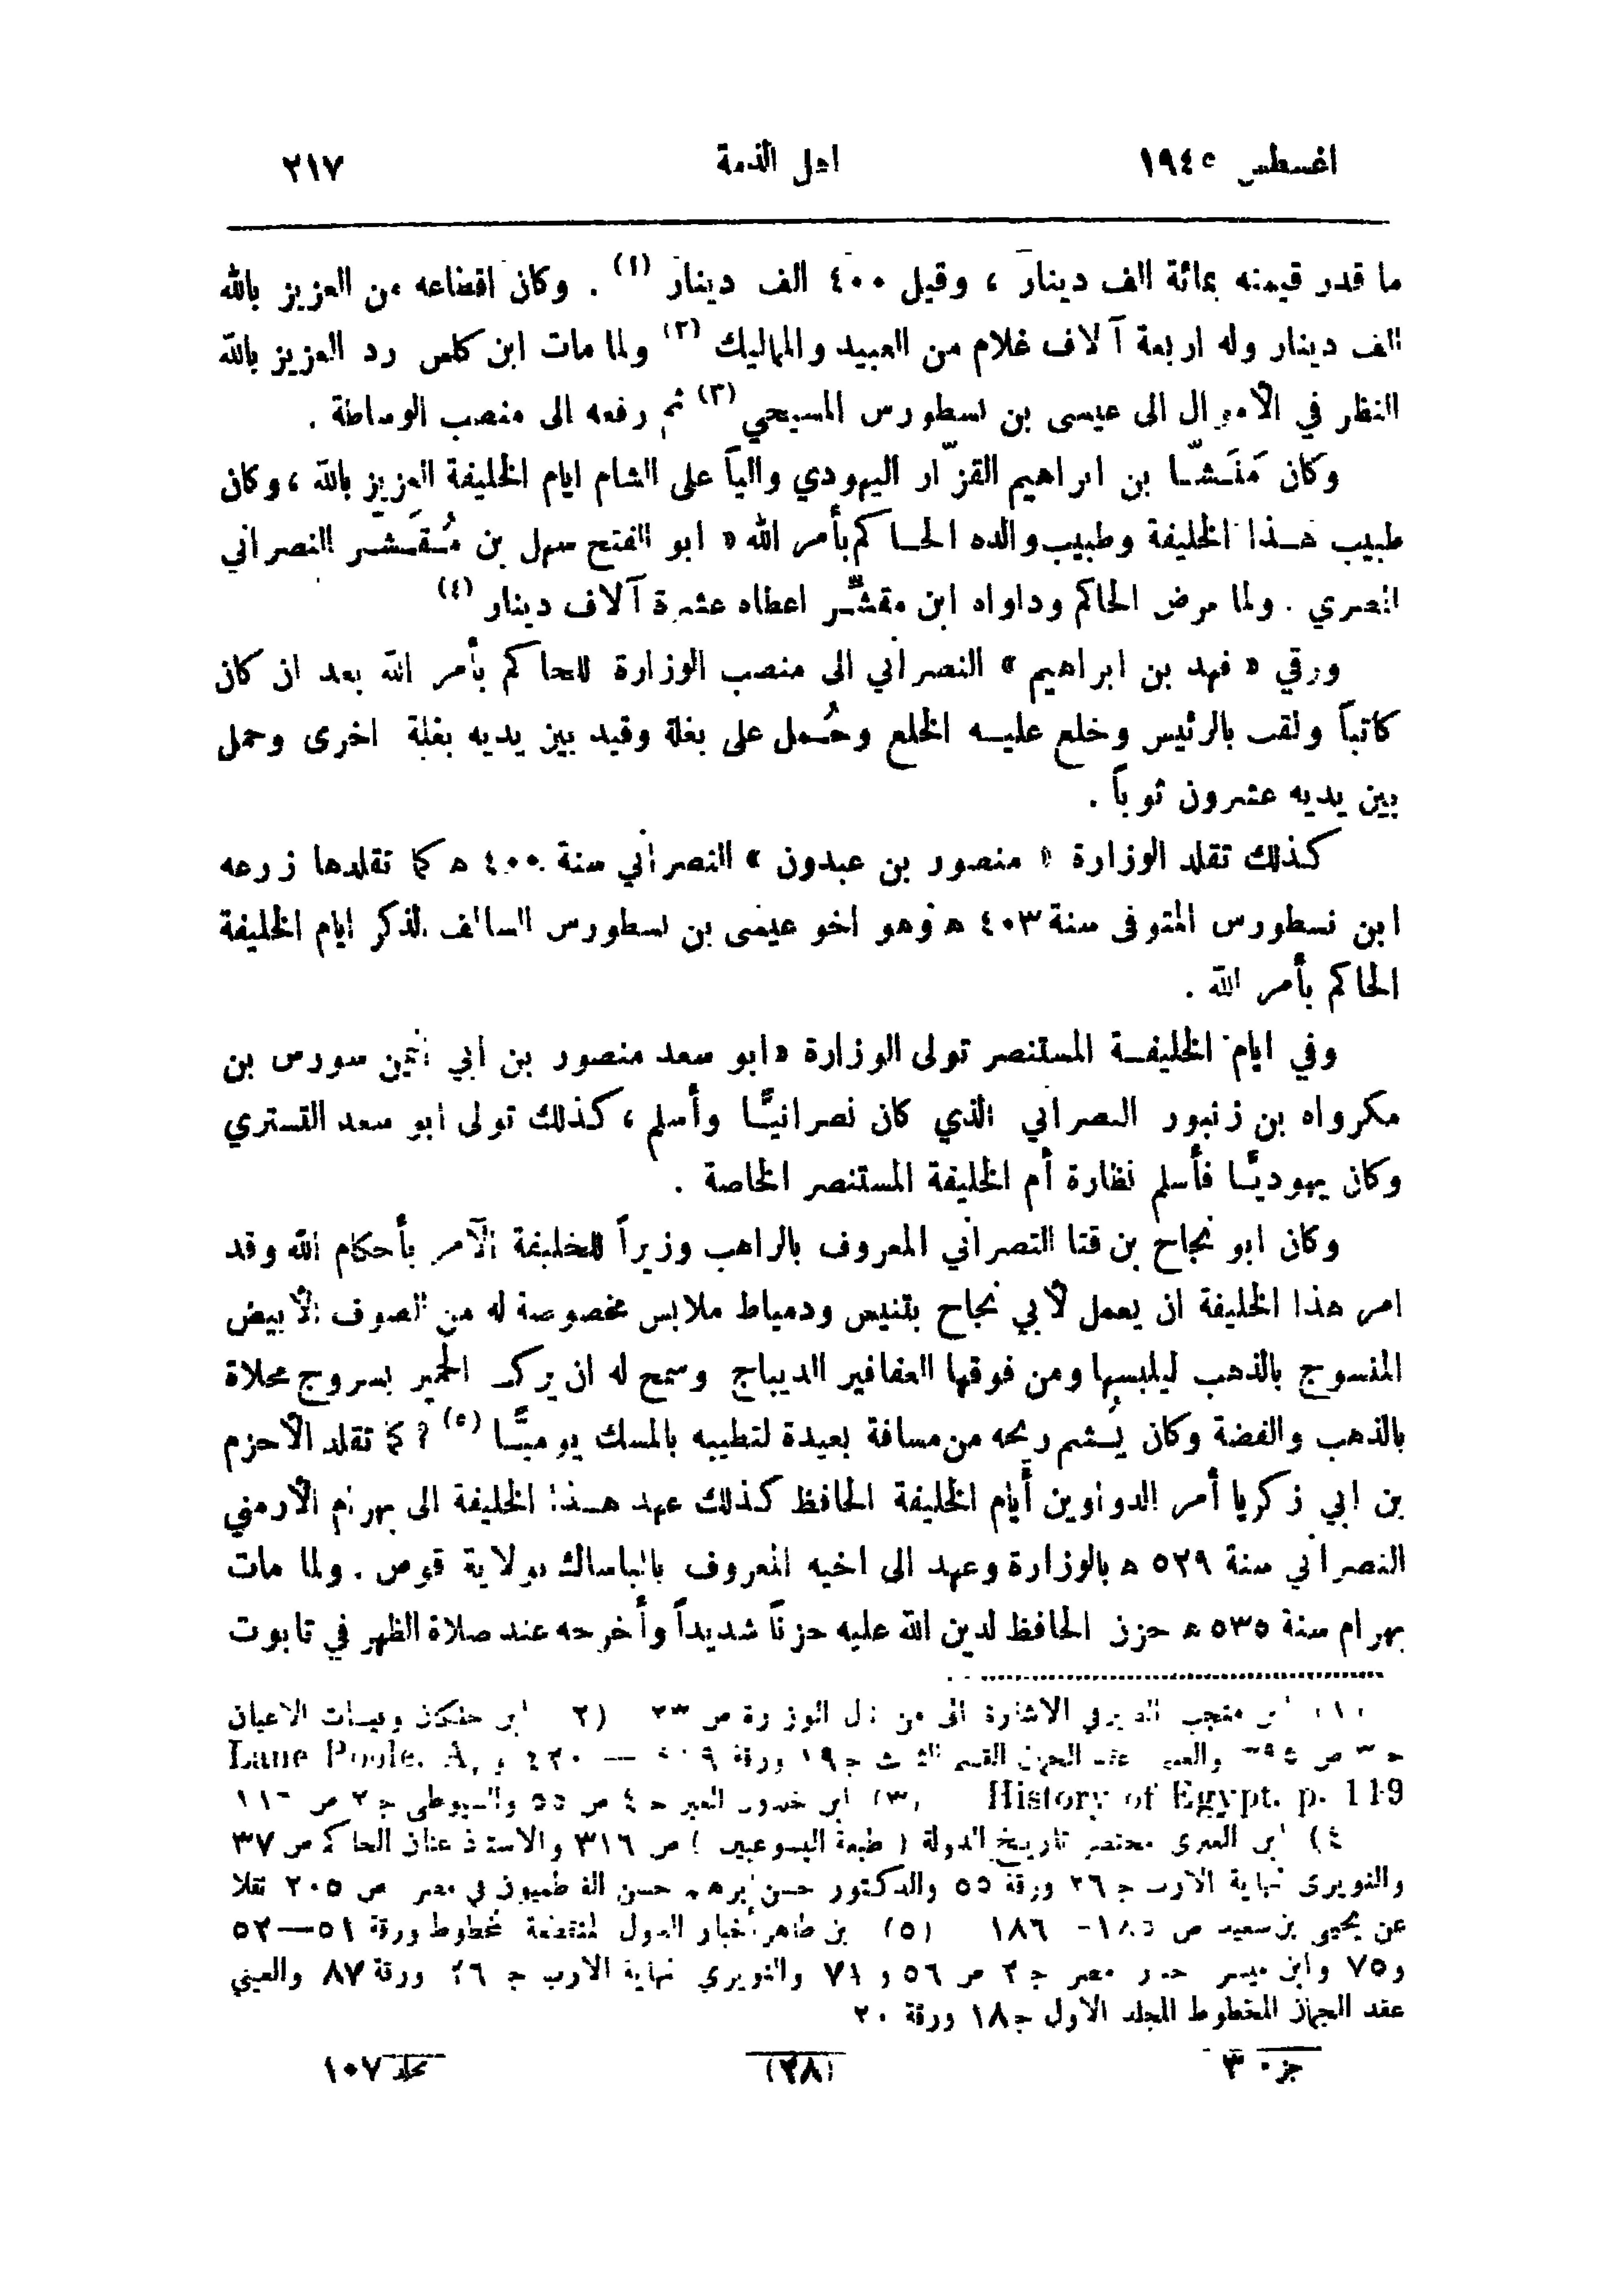 اغسطس ١٩٤٥ اهل الذمة ٢١٧
ما قدر قيمته بمائة الف دينار ، وقيل ٤٠٠ الف دينار (١) . وكان اقطاعه من العزيز بالله
الف دينار وله اربعة آلاف غلام من العبيد والمماليك (٢) ولما مات ابن كلس رد العزيز بالله
النظر في الأموال الى عيسى بن نسطورس المسيحي (٣) ثم رفعه الى منصب الوساطة .
وكان مَنَشّا بن ابراهيم القزّار اليهودي والياً على الشام ايام الخليفة العزيز بالله ، وكان
طبيب هذا الخليفة وطبيب والده الحاكم بأمر الله « ابو الفتح سهل بن مُقَشّر النصراني
المصري . ولما مرض الحاكم وداواه ابن مقشّر اعطاه عشرة آلاف دينار (٤)
ورقي « فهد بن ابراهيم » النصراني الى منصب الوزارة للحاكم بأمر الله بعد ان كان
كاتباً ولقب بالرئيس وخلع عليه الخلع وحُمل على بغلة وقيد بين يديه بغلة اخرى وحمل
بين يديه عشرون ثوباً .
كذلك تقلد الوزارة « منصور بن عبدون » النصراني سنة ٤٠٠ ه كما تقلدها زرعه
ابن نسطورس المتوفى سنة ٤٠٣ ه وهو اخو عيسى بن نسطورس السالف الذكر ايام الخليفة
الحاكم بأمر الله .
وفي ايام الخليفة المستنصر تولى الوزارة « ابو سعد منصور بن ابي سورس بن
مكرواه بن زنبور النصراني الذي كان نصرانيًّا وأسلم ، كذلك تولى ابو سعد التستري
وكان يهوديًّا فأسلم نظارة أم الخليفة المستنصر الخاصة .
وكان ابو نجاح بن قنا النصراني المعروف بالراهب وزيراً للخليفة الآمر بأحكام الله وقد
امر هذا الخليفة ان يعمل لأبي نجاح بتنيس ودمياط ملابس مخصوصة له من الصوف الأبيض
المنسوج بالذهب ليلبسها ومن فوقها العفافير الديباج وسمح له ان يركب الحمير بسروج محلاة
بالذهب والفضة وكان يُشم ريحه من مسافة بعيدة لتطيبه بالمسك يوميًّا (٥) ؟ كما تقلد الأحزم
بن ابي زكريا أمر الدواوين أيام الخليفة الحافظ كذلك عهد هذا الخليفة الى بهرام الأرمني
النصراني سنة ٥٢٩ ه بالوزارة وعهد الى اخيه المعروف بالباساك بولاية قوص . ولما مات
بهرام سنة ٥٣٥ ه حزن الحافظ لدين الله عليه حزناً شديداً وأخرجه عند صلاة الظهر في تابوت
(١) ابن منجب الصيرفي الاشارة الى من نال الوزارة ص ٢٣ (٢) ابن خلكان وفيات الاعيان
ج ٣ ص والعيني عقد الجمان القسم الثالث ج ١٩ ورقة — ٤٢٠ و Lane Poole. A,
History of Egypt. p. 119 (٣) ابن خلدون العبر ج ٤ ص ٥٥ والسيوطي ج ٢ ص ١١٦
(٤) ابن العبري مختصر تاريخ الدولة ( طبعة اليسوعيين ) ص ٣١٦ والاستاذ عنان الحاكم ص ٣٧
والنويري نهاية الارب ج ٢٦ ورقة ٥٥ والدكتور حسن ابرهيم حسن الفاطميون في مصر ص ٢٠٥ نقلا
عن يحيى بن سعيد ص ١٨٥ - ١٨٦ (٥) بن ظاهر أخبار الدول المنقطعة مخطوط ورقة ٥١—٥٢
و٧٥ وابن ميسر مصر ج ٢ ص ٥٦ و ٧١ والنويري نهاية الارب ج ٢٦ ورقة ٨٧ والعيني
عقد الجمان المخطوط المجلد الاول ج ١٨ ورقة ٢٠
جزء ٣ (٢٨) مجلد ١٠٧